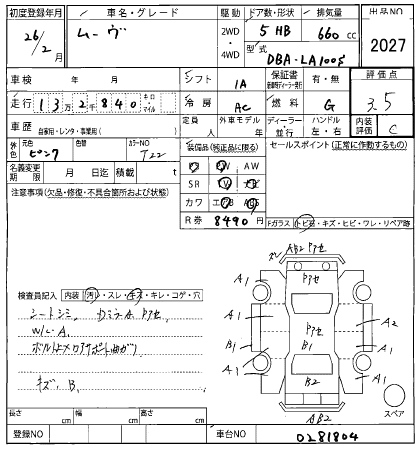 初度登録年月 車名・グレード 駆動 ドア数・形状 排気量 出品NO
26/2月 ムーヴ 2WD・4WD 5 HB 660 cc 2027
型式 DBA-LA100S
車検 年 月 シフト IA 保証書 有・無 評価点
走行 13万2千840 キロ・マイル 冷房 AC 燃料 G 3.5
車歴 自家用・レンタ・事業用( ) 定員 人 外車モデル 年 ディーラー・並行 ハンドル 左・右 内装評価 C
外色 元色 ピンク 色替 カラーNO T22 装備品(純正品に限る) セールスポイント(正常に作動するもの)
名義変更期限 月 日迄 積載 t PS PW AW
注意事項(欠品・修復・不具合箇所および状態) SR TV ナビ
カワ エアB ABS
R券 8490 円 Fガラス トビ石・キズ・ヒビ・ワレ・リペア跡
AB2 アセ
A1 アセ A1
A1 アセ A2
B1 B1 A1
A1 B2 A1
AB2
スペア
検査員記入 内装 汚レ・スレ・キズ・キレ・コゲ・穴
シートシミ
W/L-A
キズ、B
長さ cm 幅 cm 高さ cm
登録NO 車台NO 0281804